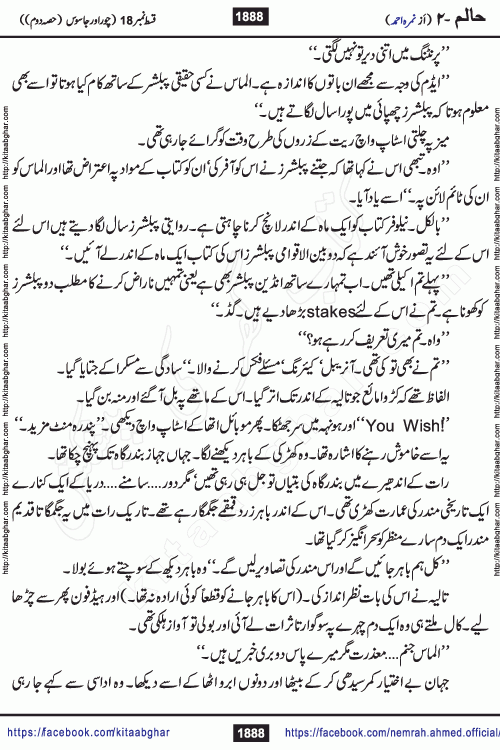 حالم -۲ (از نمرہ احمد)
1888
قسط نمبر 18 (چور اور جاسوس (حصہ دوم))
”پرنٹنگ میں اتنی دیر تو نہیں لگتی۔“
”ایڈم کی وجہ سے مجھے ان باتوں کا اندازہ ہے۔ الماس نے کسی حقیقی پبلشر کے ساتھ کام کیا ہوتا تو اسے بھی
معلوم ہوتا کہ پبلشرز چھپائی میں پورا سال لگاتے ہیں۔“
میز پہ چلتی اسٹاپ واچ ریت کے ذروں کی طرح وقت کو گرائے جا رہی تھی۔
”اوہ۔ تبھی اس نے کہا تھا کہ جتنے پبلشرز نے اس کو آفر کی‘ ان کو کتاب کے مواد پہ اعتراض تھا اور الماس کو
ان کی ٹائم لائن پہ۔“ اسے یاد آیا۔
”بالکل۔ نیلوفر کتاب کو ایک ماہ کے اندر لانچ کرنا چاہتی ہے۔ روایتی پبلشرز سال لگا دیتے ہیں اس لئے
اس کے لئے یہ تصور خوش آئند ہے کہ دو بین الاقوامی پبلشرز اس کی کتاب ایک ماہ کے اندر لے آئیں۔“
”پہلے تم اکیلی تھیں۔ اب تمہارے ساتھ انڈین پبلشر بھی ہے یعنی تمہیں ناراض کرنے کا مطلب دو پبلشرز
کو کھونا ہے۔ تم نے اس کے لئے stakes بڑھا دیے ہیں۔ گڈ۔“
”واہ۔ تم میری تعریف کر رہے ہو؟“
”تم نے بھی تو کی تھی۔ آنریبل‘ کیئرنگ‘ مسئلے فکس کرنے والا۔“ سادگی سے مسکرا کے جتایا گیا۔
الفاظ تھے کہ کڑوا مائع جو تالیہ کے اندر تک اتر گیا۔ اس کے ماتھے پہ بل آ گئے اور منہ بن گیا۔
”You Wish!“ اور ہونہہ میں سر جھٹکا۔ پھر موبائل اٹھا کے اسٹاپ واچ دیکھی۔ ”پندرہ منٹ مزید۔“
یہ اسے خاموش رہنے کا اشارہ تھا۔ وہ کھڑکی کے باہر دیکھنے لگا۔ جہاں جہاز بندرگاہ تک پہنچ چکا تھا۔
رات کے اندھیرے میں بندرگاہ کی بتیاں تو جل ہی رہی تھیں‘ مگر دور.... سامنے.... دریا کے ایک کنارے
ایک تاریخی مندر کی عمارت کھڑی تھی۔ اس کے اندر باہر زرد قمقمے جگمگا رہے تھے۔ تاریک رات میں یہ جگمگاتا قدیم
مندر ایک دم سارے منظر کو سحر انگیز کر گیا تھا۔
”کل ہم باہر جائیں گے اور اس مندر کی تصاویر لیں گے۔“ وہ باہر دیکھ کے سوچتے ہوئے بولا۔
تالیہ نے اس کی بات نظر انداز کی۔ (اس کا باہر جانے کو قطعاً کوئی ارادہ نہ تھا۔) اور ہیڈ فون پھر سے چڑھا
لیے۔ کال ملتے ہی وہ ایک دم چہرے پہ سوگوار تاثرات لے آئی اور بولی تو آواز ہلکی تھی۔
”الماس خنم.... معذرت مگر میرے پاس دو بری خبریں ہیں۔“
جہان بے اختیار کمر سیدھی کر کے بیٹھا اور دونوں ابرو اٹھا کے اسے دیکھا۔ وہ اداسی سے کہے جا رہی
https://facebook.com/kitaabghar
1888
https://facebook.com/nemrah.ahmed.official/
http://kitaabghar.com